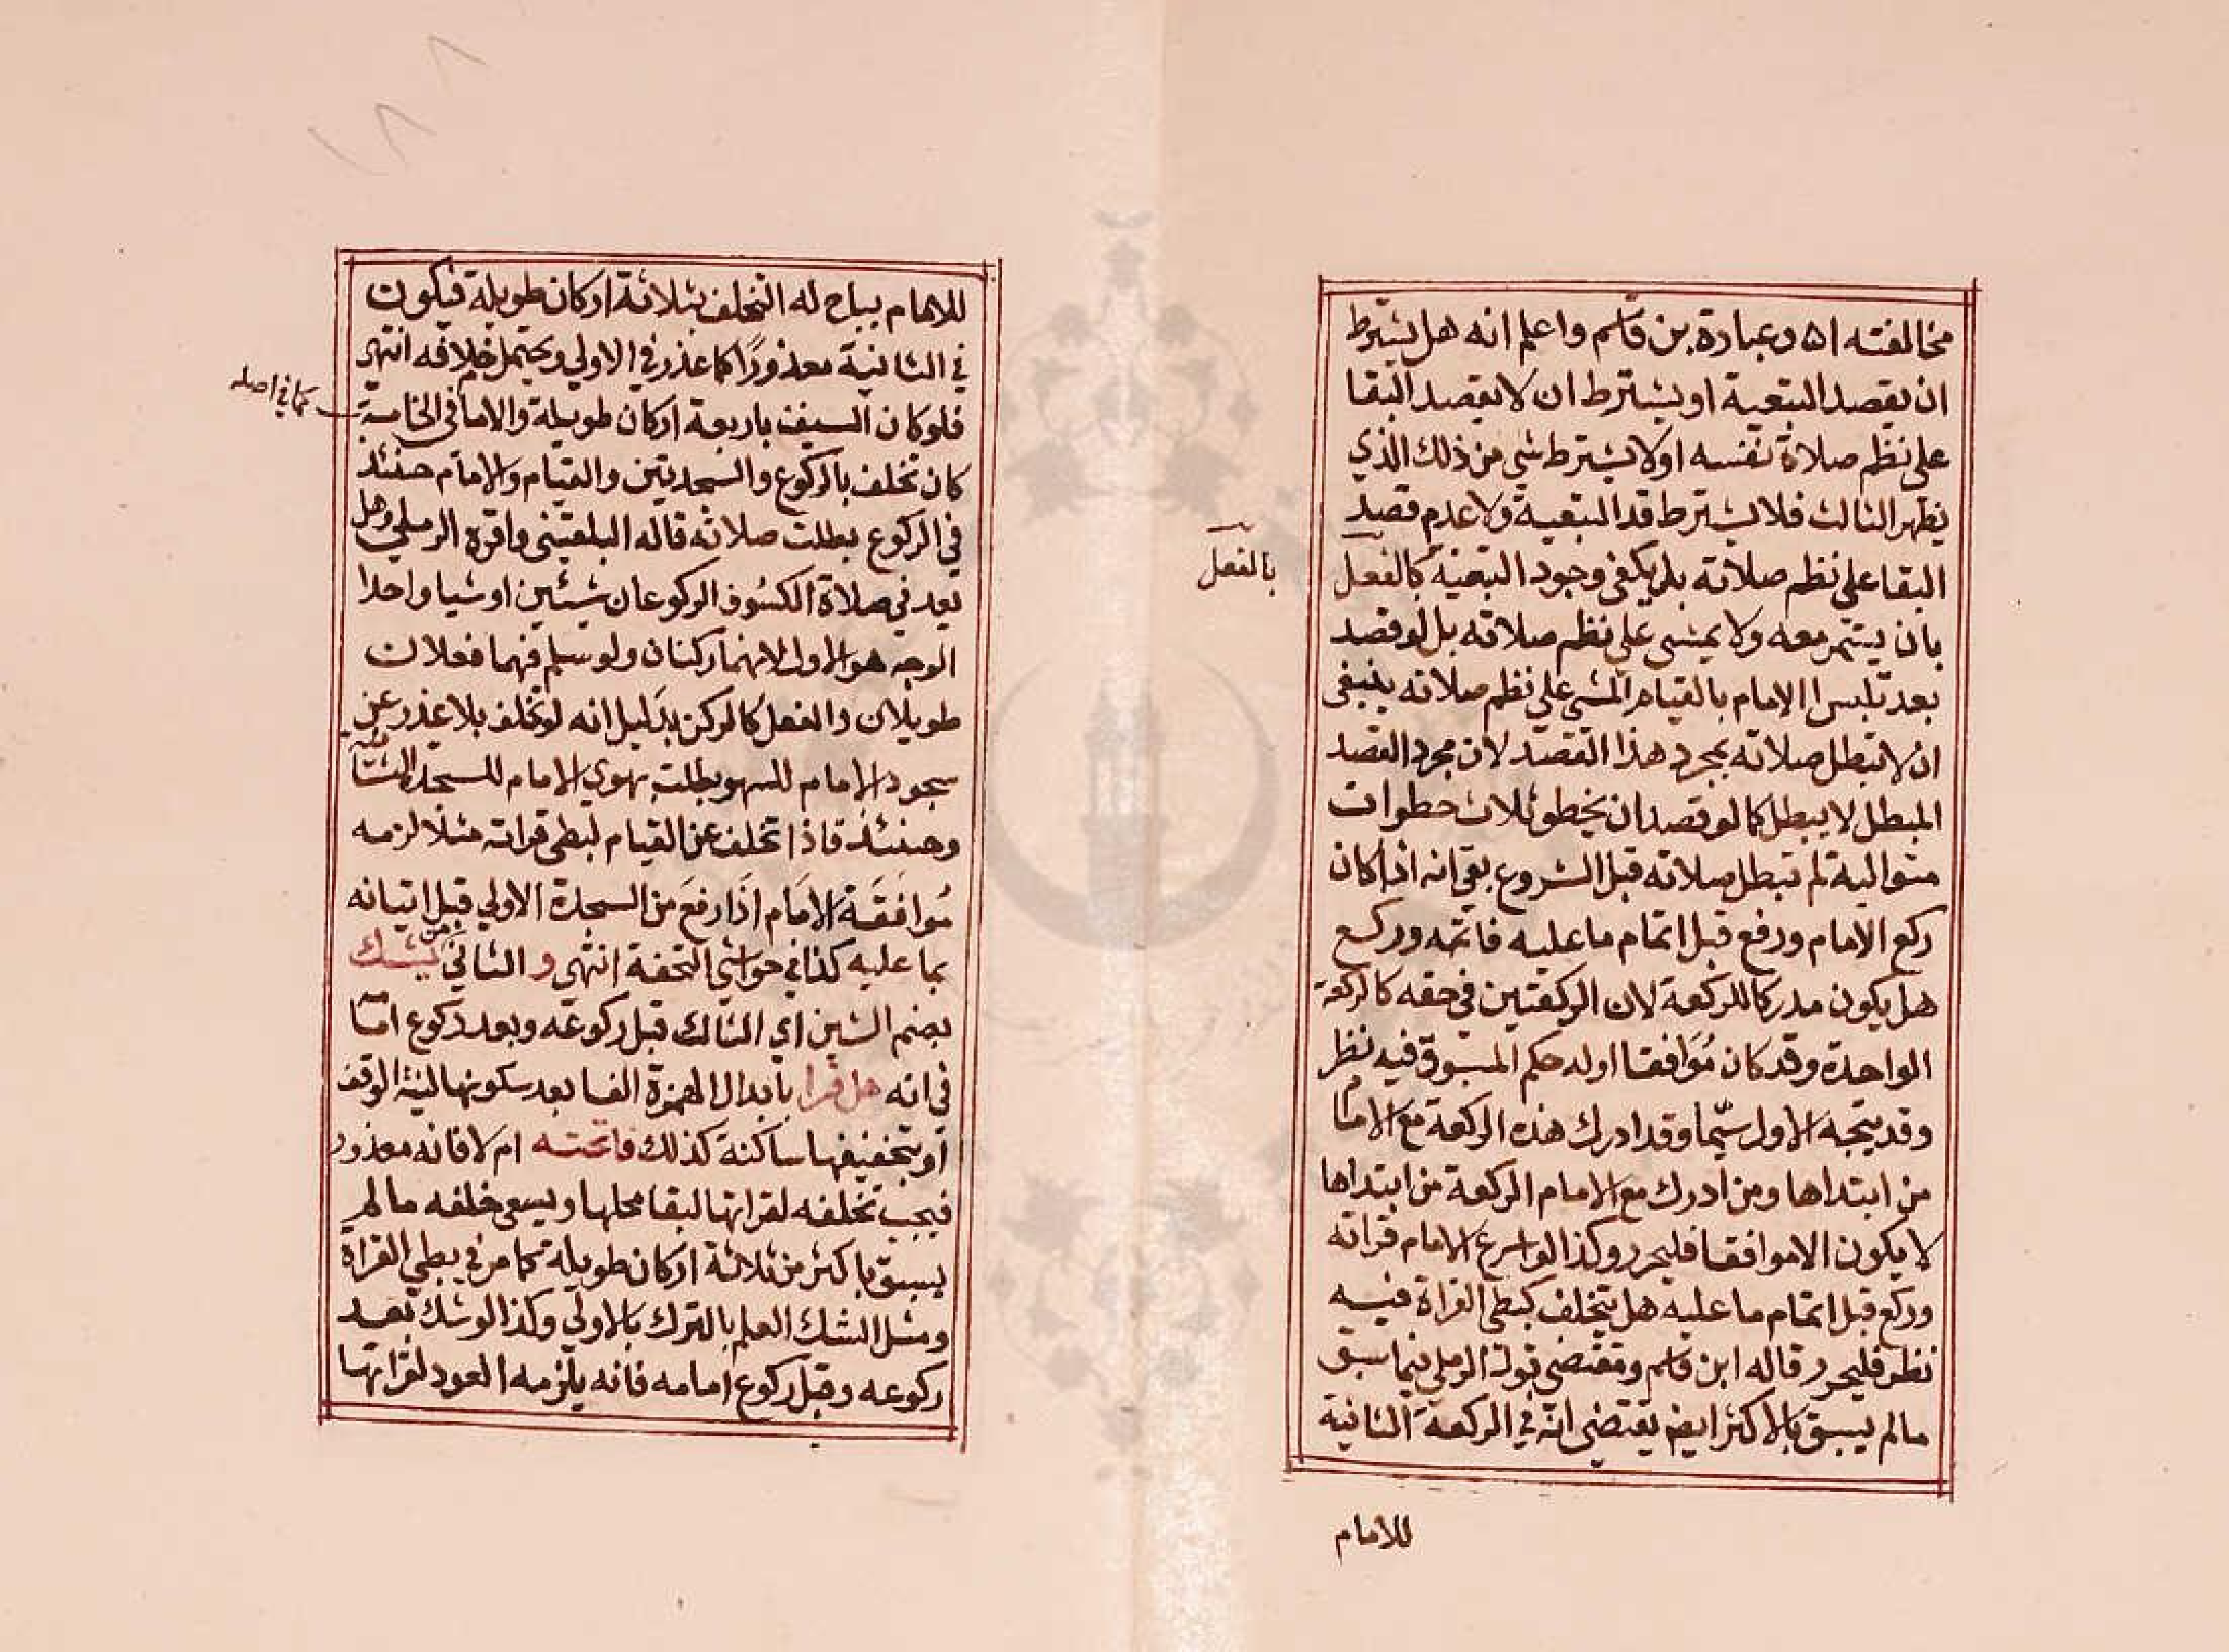 مخالفته اه وعبارة بن قاسم واعلم انه هل يشترط
ان يقصد التبعية او يشترط ان لا يقصد البقا
على نظم صلاة نفسه او لا يشترط شي من ذلك الذي
يظهر الثالث فلا يشترط قد التبعية ولا عدم قصد
البقا على نظم صلاته بل يكفي وجود التبعية كالفعل
بالفعل
بان يستمر معه ولا يمشي على نظم صلاته بل لو قصد
بعد تلبس الامام بالقيام المشي على نظم صلاته ينبغي
ان لا تبطل صلاته بمجرد هذا القصد لان مجرد القصد
المبطل لا يبطل كما لو قصد ان يخطو ثلاث خطوات
متوالية لم تبطل صلاته قبل الشروع بقي انه اذا كان
ركع الامام ورفع قبل اتمام ما عليه فاتمه وركع
هل يكون مدركا للركعة لان الركعتين في حقه كالركعة
الواحدة وقد كان مُوَافقا او له حكم المسبوق فيه نظر
وقد يتجه الاول سيّما وقد ادرك هذه الركعة مع الامام
من ابتداها ومن ادرك مع الامام الركعة من ابتداها
لا يكون الا موافقا فليحرر وكذا لو اسرع الامام قراته
وركع قبل اتمام ما عليه هل يتخلف كبطي القراة فيه
نظر فليحرر قاله ابن قاسم ومقتضي قول الرملي فيما سبق
ما لم يسبق بالاكثر ايضا يقتضي انه في الركعة الثانية
للامام
للامام يباح له التخلف بثلاثة اركان طويلة فيكون
في الثانية معذورًا كما عذر في الاولي ويحتمل خلافه انتهى
كما في اصله
فلو كان السبق باربعة اركان طويلة والامام في الخامسة
كان تخلف بالركوع والسجدتين والقيام والامام حينئذ
في الركوع بطلت صلاته قاله البلقيني واقره الرملي وهل
يعد في صلاة الكسوف الركوعان شيئين او شيا واحدا
الوجه هو الاول لانهما ركنان ولو سلم فهما فعلان
طويلان والفعل كالركن بدليل انه لو تخلف بلا عذر عن
سجود الامام للسهو بطلت بهوي الامام للسجدة الثانية
وحينئذ فاذا تخلف عن القيام لبطي قراته مثلا لزمه
مُوافقَة الامَام اذَا رفعَ من السجدة الاولي قبل اتيانه
بما عليه كذا في حواشي التحفة انتهى و الثاني من يشك
بضم الشين اي الثالث قبل ركوعه وبعد ركوع امامه
في انه هل قرا بابدال الهمزة الفا بعد سكونها لنية الوقف
او بتخفيفها ساكنة كذلك فاتحته ام لا فانه معذور
فيجب تخلفه لقراتها لبقا محلها ويسعى خلفه ما لم
يسبق باكثر من ثلاثة اركان طويلة كما مر في بطي القراة
ومثل الشك العلم بالترك بالاولي وكذا لو شك بعد
ركوعه وقبل ركوع امامه فانه يلزمه العود لقراتها